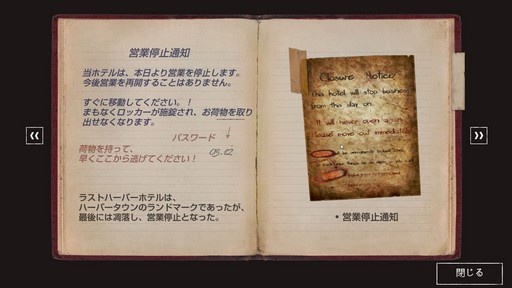 営業停止通知
当ホテルは、本日より営業を停止します。
今後営業を再開することはありません。
すぐに移動してください。！
まもなくロッカーが施錠され、お荷物を取り
出せなくなります。
パスワード
荷物を持って、
早くここから逃げてください！
05.02
ラストハーバーホテルは、
ハーバータウンのランドマークであったが、
最後には凋落し、営業停止となった。
Closure Notice
This hotel will stop business
from this day on.
It will never open again
Please move out immediately
• 営業停止通知
閉じる